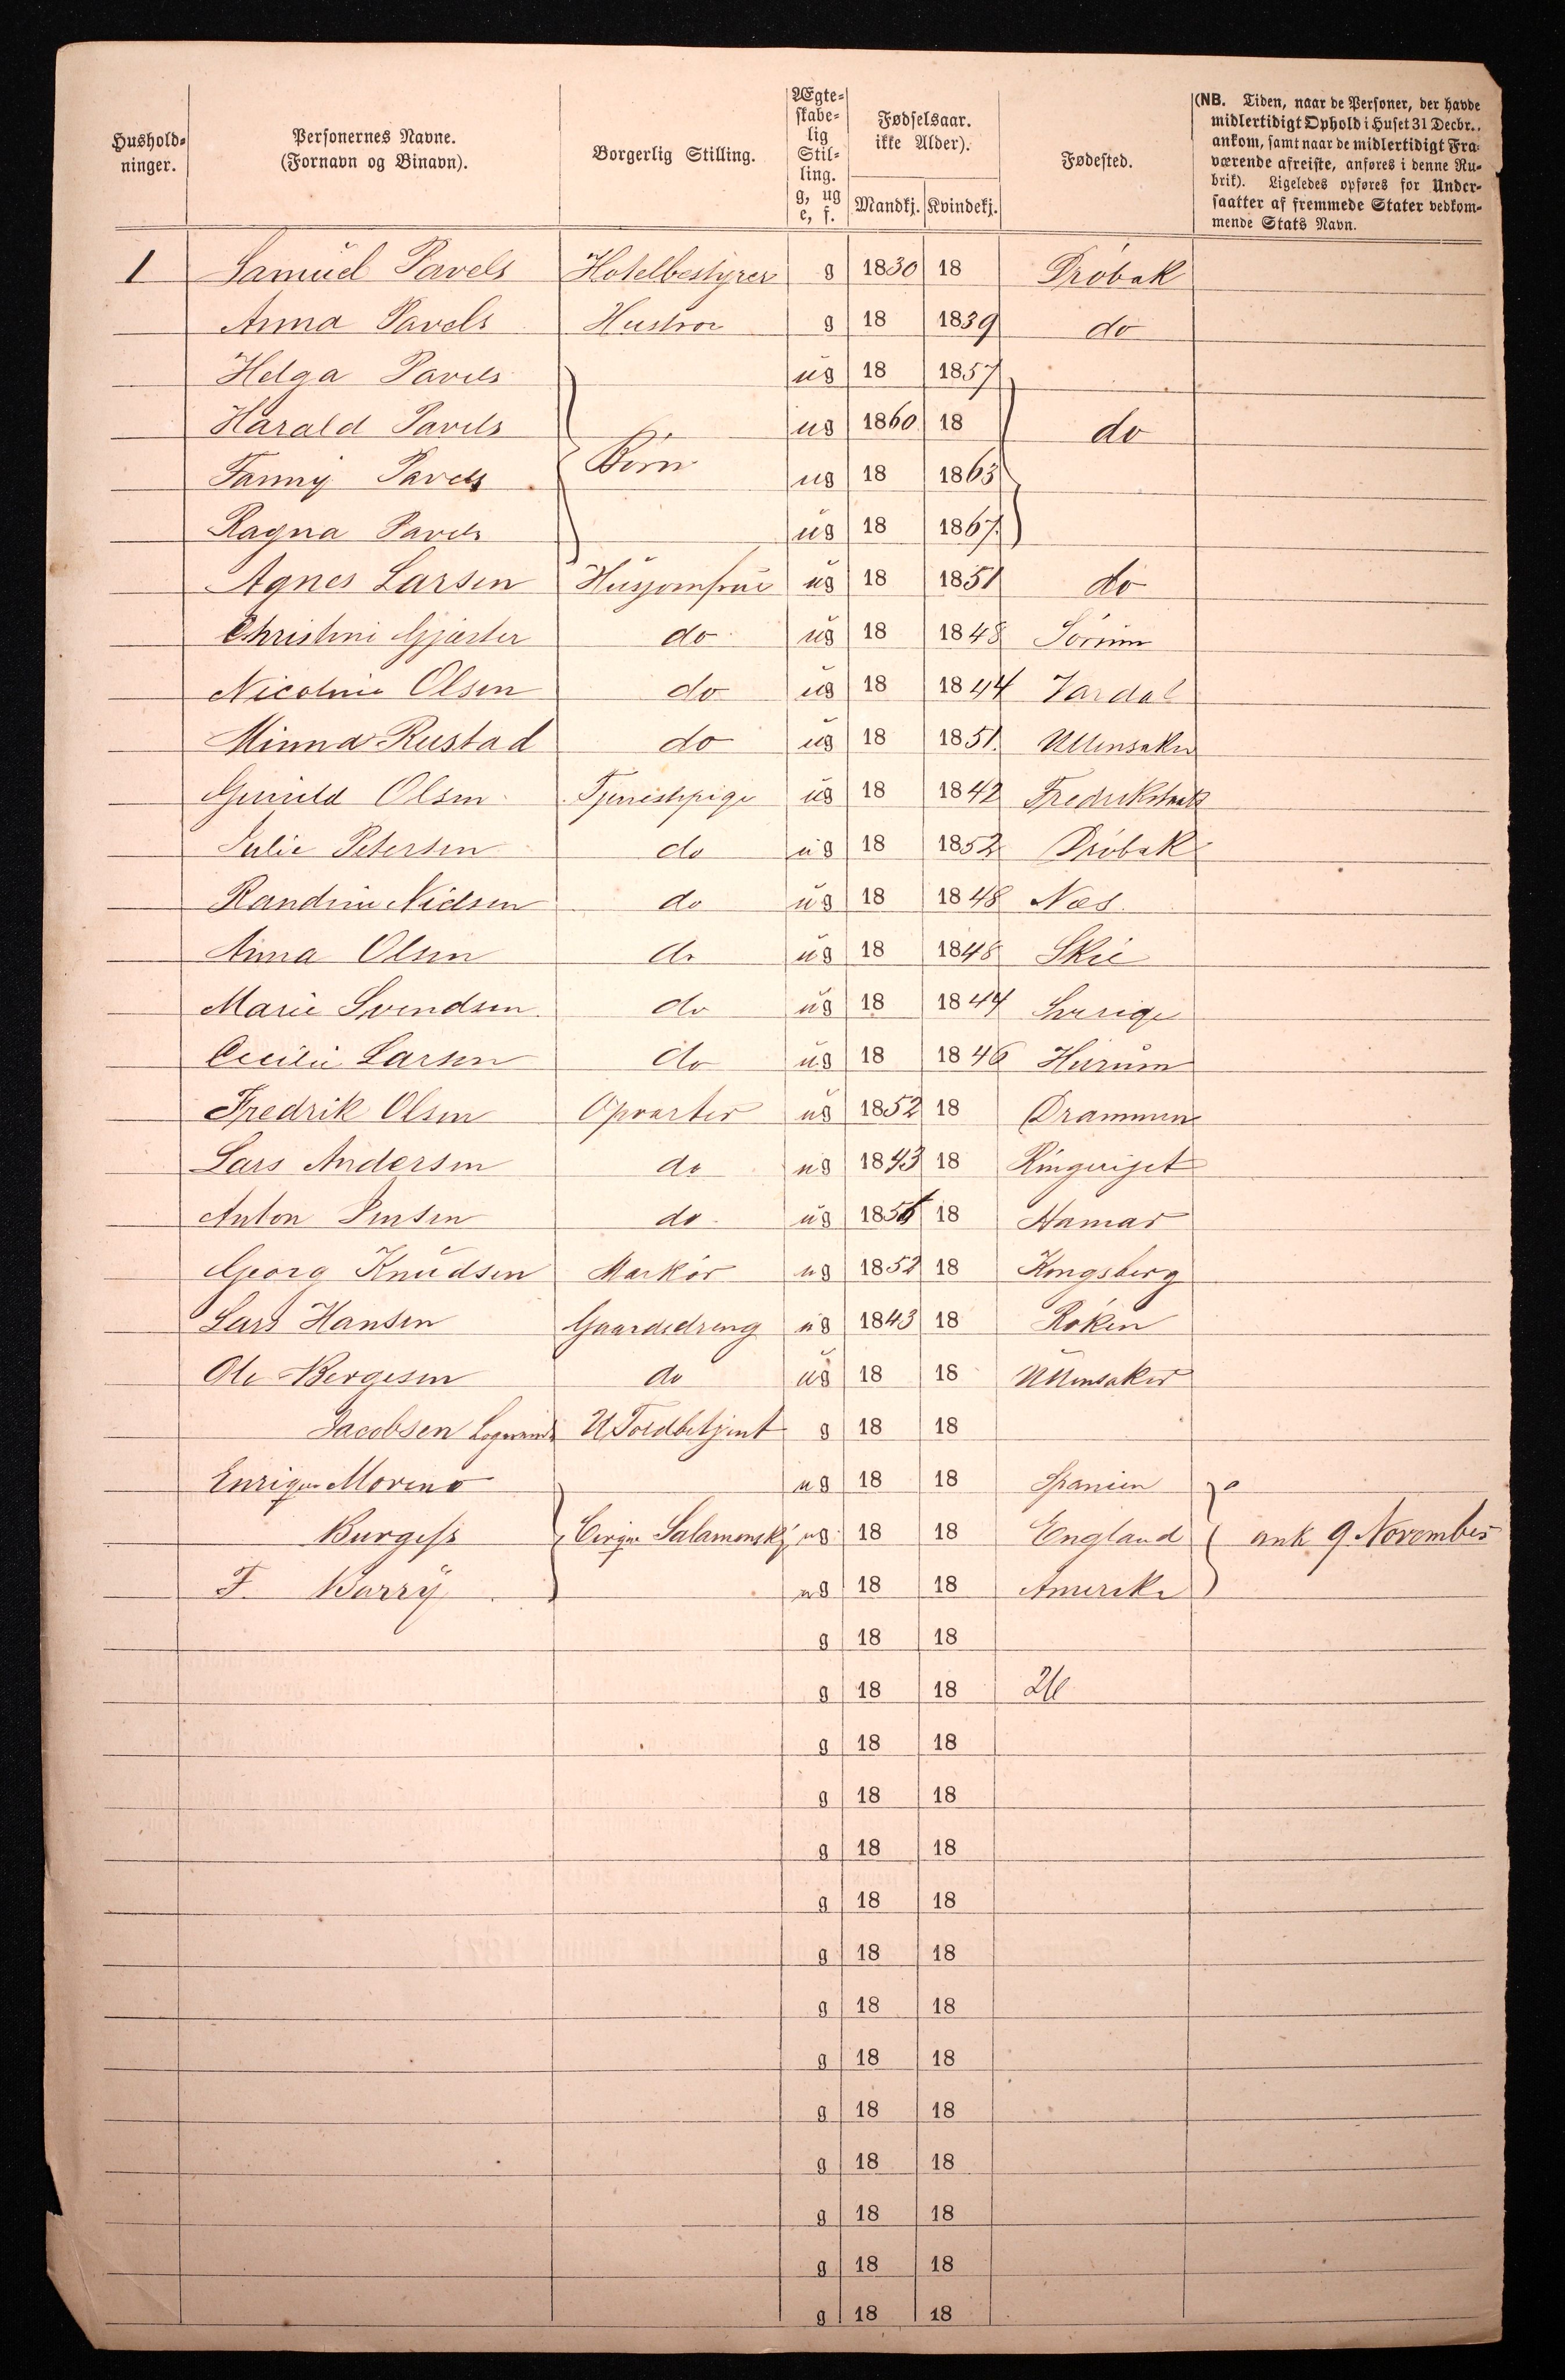 Hushold-ninger. Personernes Navne. (Fornavn og Binavn). Borgerlig Stilling. Ægte-skabe-lig Stil-ling. g, ug e, f. Fødselsaar. ikke Alder). Mandkj. Kvindekj. Fødested. (NB. Tiden, naar de Personer, der havde midlertidigt Ophold i Huset 31 Decbr.. ankom, samt naar de midlertidigt Fra-værende afreiste, anføres i denne Ru-brik). Ligeledes opføres for Under-saatter af fremmede Stater vedkom-mende Stats Navn.
1 Samuel Pavels Hotelbestyrer g 1830 18 Drøbak
Anna Pavels Hustroe g 18 1839 do
Helga Pavels ug 18 1857
Harald Pavels ug 1860 18 do
Fanny Pavels Børn ug 18 1863
Ragna Pavels ug 18 1867
Agnes Larsen Husjomfrue ug 18 1851 do
Christine Gjæster do ug 18 1848 Sørum
Nicoline Olsen do ug 18 1844 Vardal
Minna Rustad do ug 18 1851 Ullensaker
Gunild Olsen Tjenestepige ug 18 1842 Fredrikstad
Julie Petersen do ug 18 1852 Drøbak
Randine Nielsen do ug 18 1848 Næs
Anna Olsen do ug 18 1848 Skie
Marie Svendsen do ug 18 1844 Sverige
Cecilie Larsen do ug 18 1846 Hurum
Fredrik Olsen Opvarter ug 1852 18 Drammen
Lars Andersen do ug 1843 18 Ringeriget
Anton Jensen do ug 18 Hamar
Georg Knudsen Markør ug 1852 18 Kongsberg
Lars Hansen Gaardsdreng ug 1843 18 Røken
Ole Bergesen do ug 18 18 Ullensaker
Jacobsen Logerende U Toldbetjent g 18 18
Enrique Moreno ug 18 18 Spanien
Burgess Cirque Salamonsky ug 18 18 England ank 9 November
F. Barry ug 18 18 Amerika
g 18 18
g 18 18 26
g 18 18
g 18 18
g 18 18
g 18 18
g 18 18
g 18 18
g 18 18
g 18 18
g 18 18
g 18 18
g 18 18
g 18 18